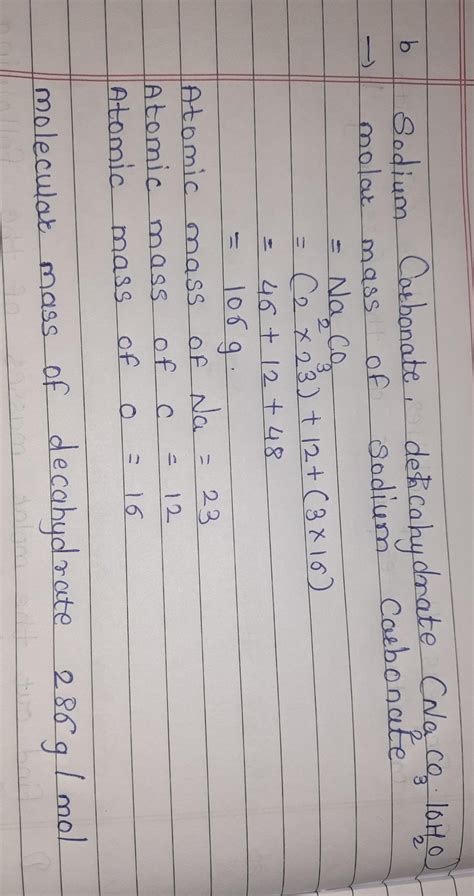 b Sodium Carbonate, decahydrate (Na₂CO₃·10H₂O)
→ molar mass of Sodium Carbonate
= Na₂CO₃
= (2 × 23) + 12 + (3 × 16)
= 46 + 12 + 48
= 106 g.
Atomic mass of Na = 23
Atomic mass of C = 12
Atomic mass of O = 16
molecular mass of decahydrate 286 g/mol